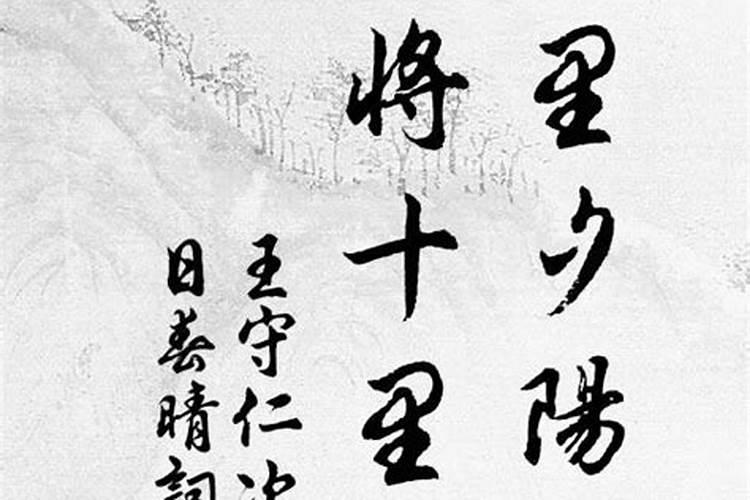 里夕陽
將十里
王守仁
日春晴詞